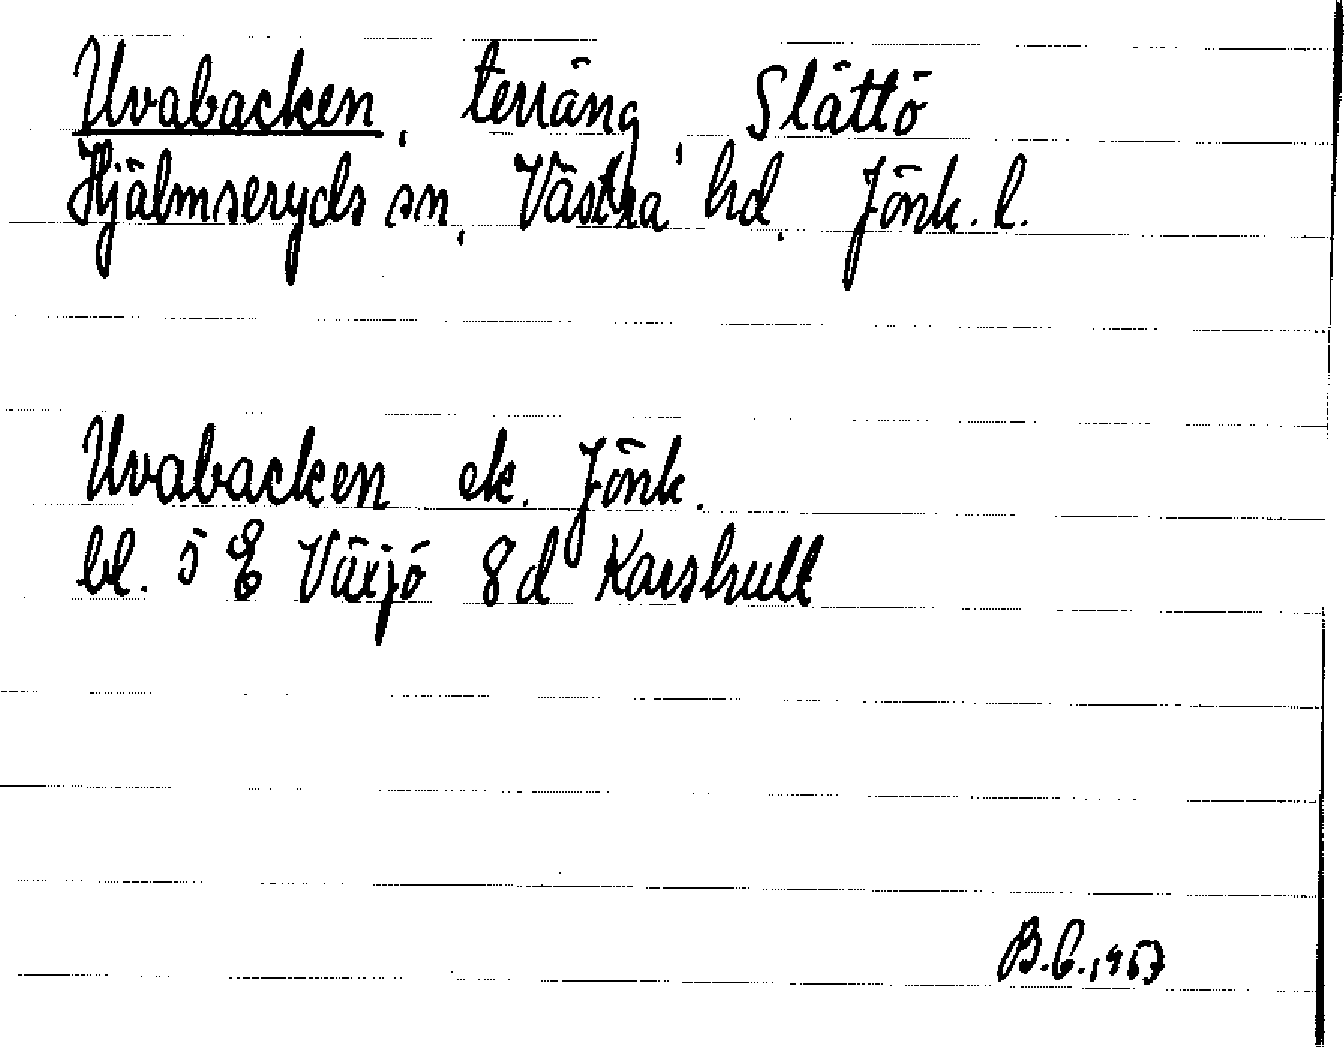 Uvabacken, terräng, Slättö
Hjälmseryds sn, Västra hd, Jönk. l.
Uvabacken ek. Jönk.
bl. 5 E Växjö 8d Karshult
B.C. 1957